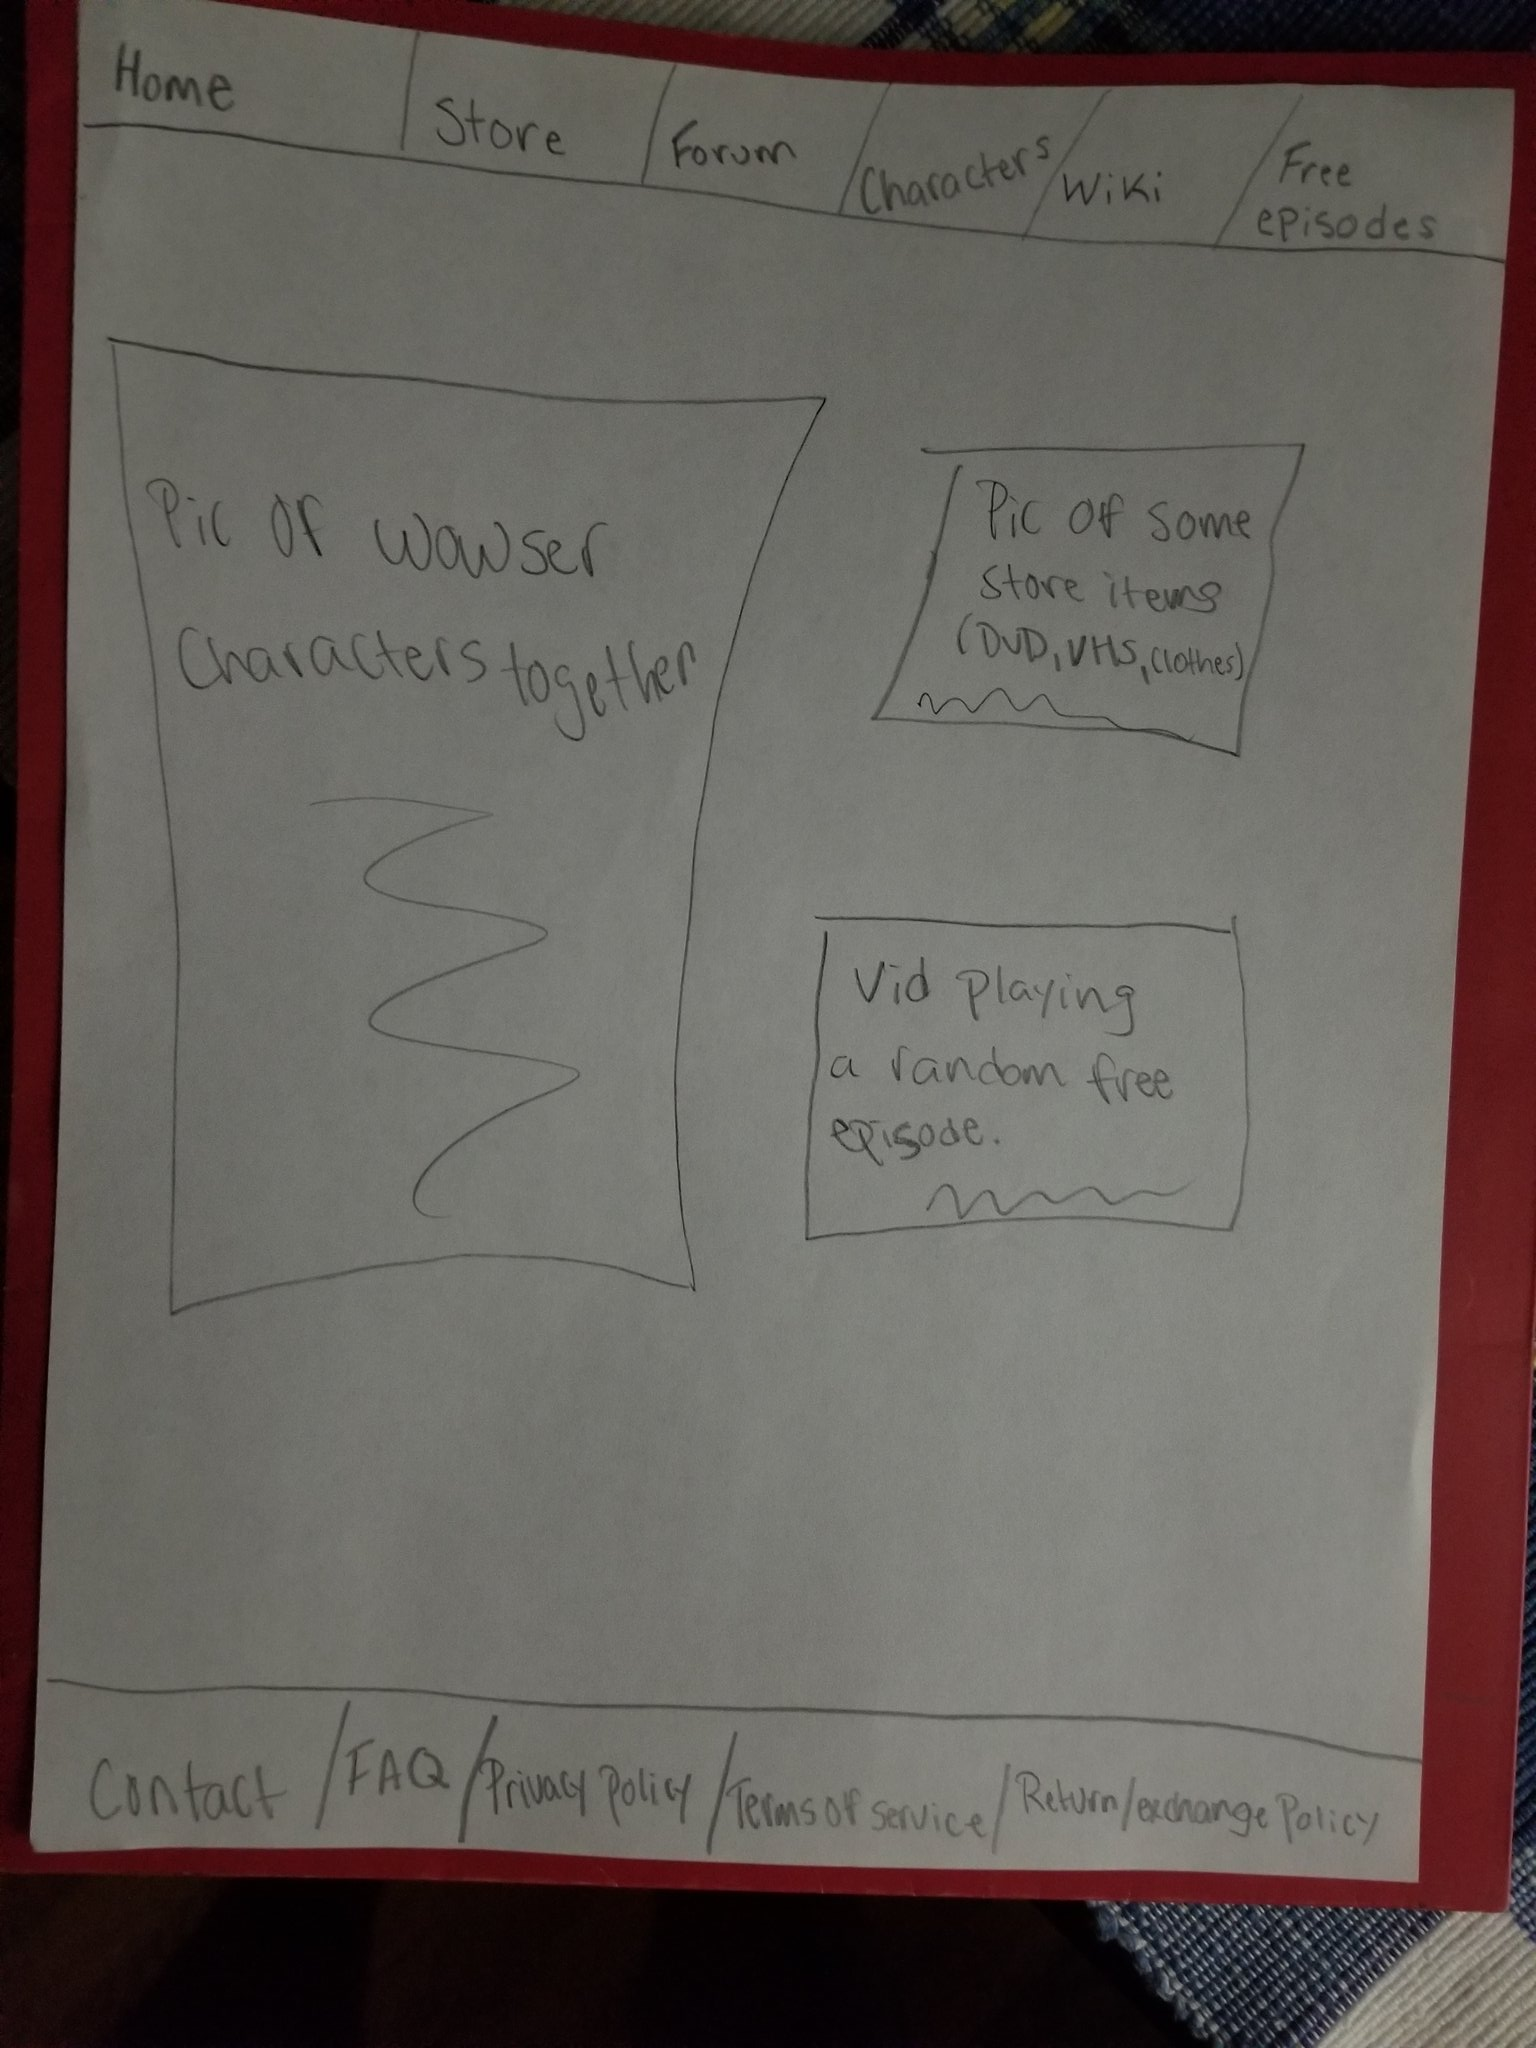 Home
Store
Forum
Characters
Wiki
Free
episodes
Pic of wowser
Characters together
Pic of some
store items
(DVD, VHS, clothes)
Vid playing
a random free
episode.
Contact / FAQ / Privacy policy / Terms of service / Return/exchange Policy